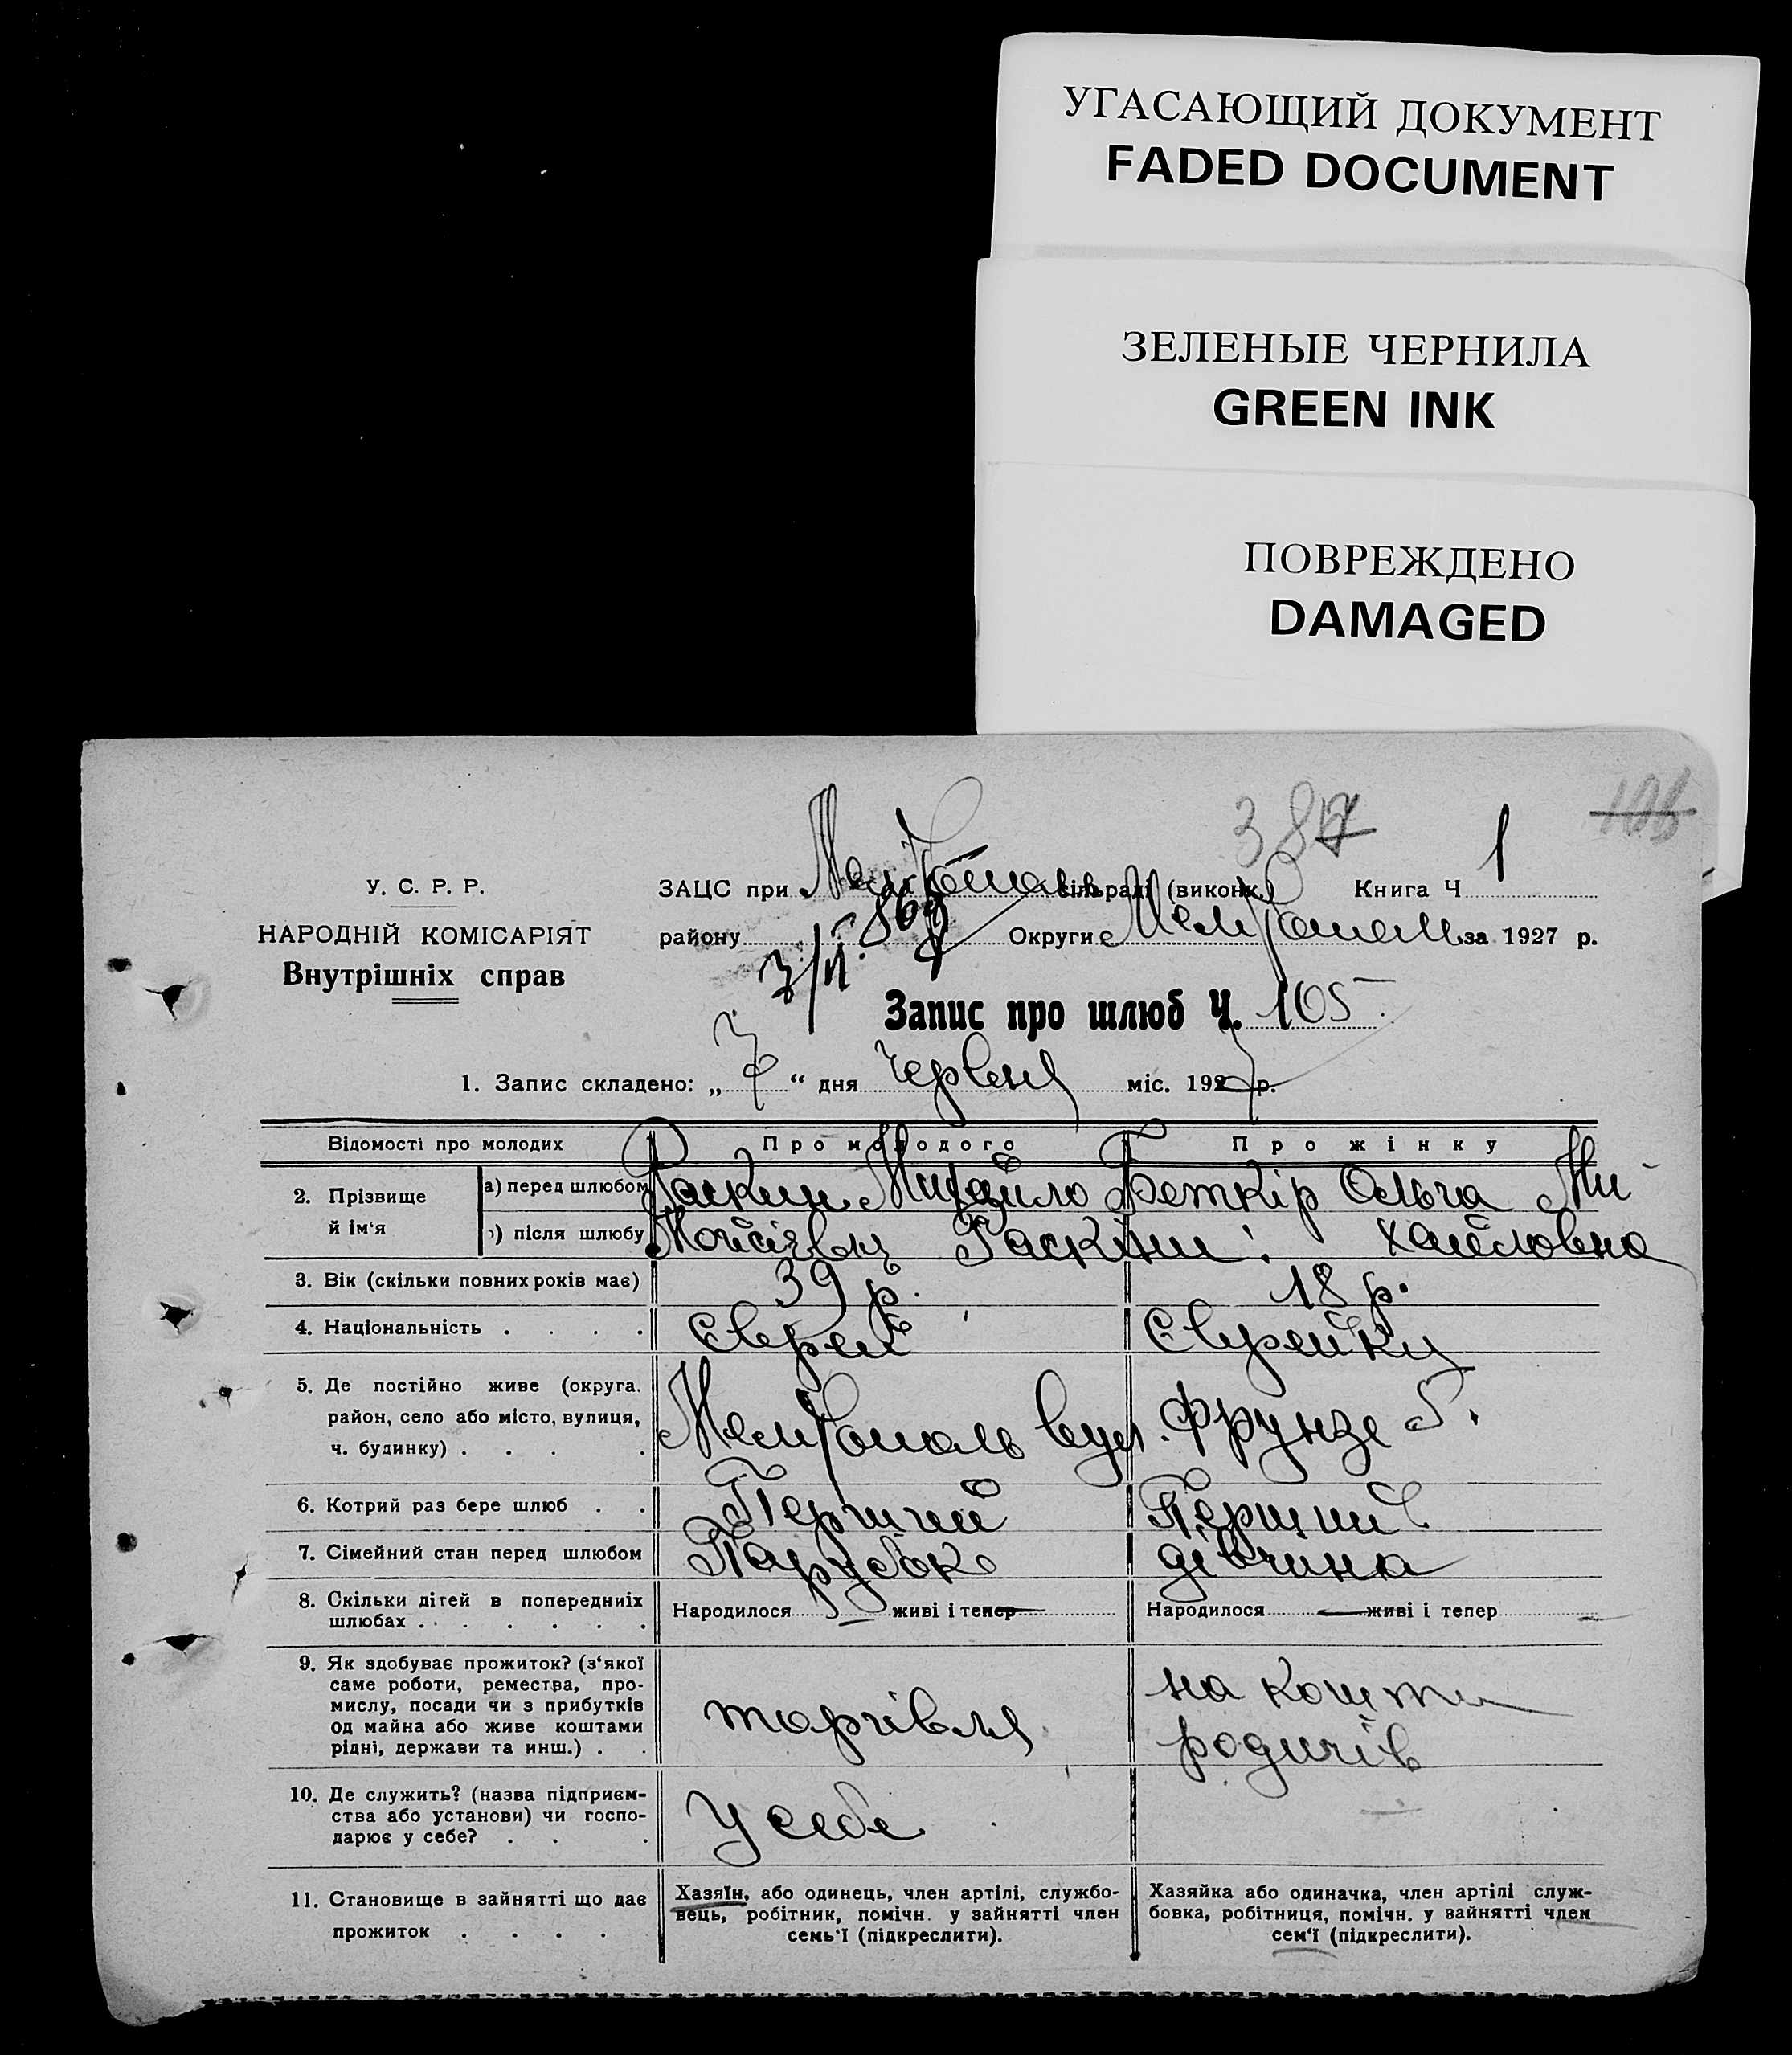 УГАСАЮЩИЙ ДОКУМЕНТ
FADED DOCUMENT
ЗЕЛЕНЫЕ ЧЕРНИЛА
GREEN INK
ПОВРЕЖДЕНО
DAMAGED
387
У. С. Р. Р.
НАРОДНІЙ КОМІСАРІЯТ
Внутрішніх справ
ЗАЦС при Мелітопольс сільраді (виконк.) Книга Ч 1
району Округи Мелітополь за 1927 р.
869
Запис про шлюб Ч. 105
1. Запис складено: „ 7 “ дня Червня міс. 1927 р.
Відомості про молодих Про молодого Про жінку
2. Прізвище й ім‘я
а) перед шлюбом Раскин Михайло Беткір Ольга Ми
) після шлюбу Мойсієвич Раскіни: хайловна
3. Вік (скільки повних років має) 39 р. 18 р.
4. Національність . . . . Єврей Єврейка
5. Де постійно живе (округа, район, село або місто, вулиця, ч. будинку) . . . . Мелітополь вул. Фрунзе 5.
6. Котрий раз бере шлюб . . Перший Перший
7. Сімейний стан перед шлюбом Парубок дівчина
8. Скільки дітей в попередниіх шлюбах . . . . . . Народилося — живі і тепер — Народилося — живі і тепер —
9. Як здобуває прожиток? (з‘якої саме роботи, ремества, промислу, посади чи з прибутків од майна або живе коштами рідні, держави та инш.) . . торгівля на кошти родичів
10. Де служить? (назва підприємства або установи) чи господарює у себе? . . . У себе —
11. Становище в зайнятті що дає прожиток . . . .
Хазяїн, або одинець, член артілі, службовець, робітник, помічн. у зайнятті член семь‘ї (підкреслити).
Хазяйка або одиначка, член артілі службовка, робітниця, помічн. у зайнятті член сем‘ї (підкреслити).